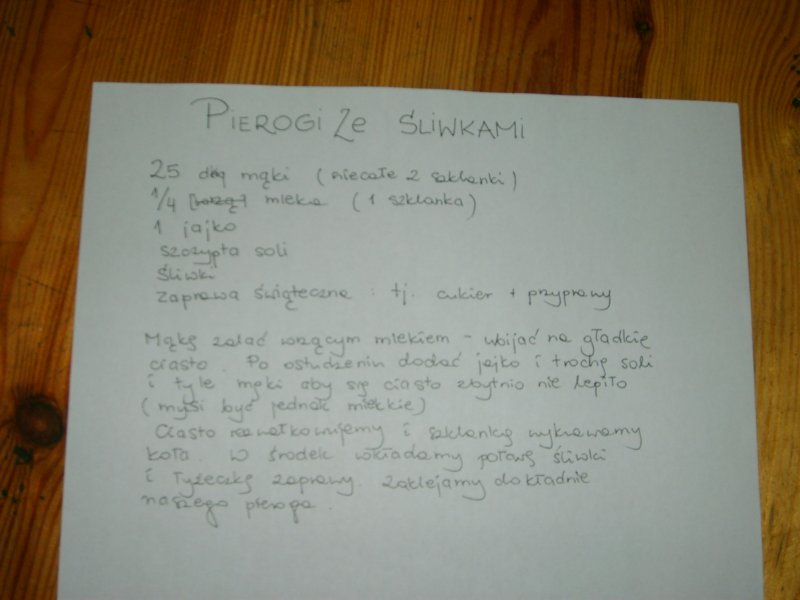 PIEROGI Ze ŚLIWKAMI
25 dkg mąki (niecałe 2 szklanki)
1/4 mleka (1 szklanka)
1 jajko
szczypta soli
śliwki
zaprawa świąteczna : tj. cukier + przyprawy
Mąkę zalać wrzącym mlekiem - ubijać na gładkie
ciasto. Po ostudzeniu dodać jajko i trochę soli
i tyle mąki aby się ciasto zbytnio nie lepiło
(musi być jednak miękkie)
Ciasto rozwałkowujemy i szklanką wykrawamy
koła. W środek wkładamy połowę śliwki
i łyżeczkę zaprawy. Zaklejamy dokładnie
naszego pieroga.